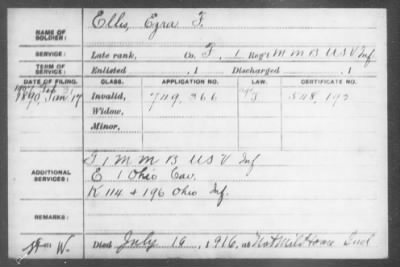 Ellis, Ezra F.
NAME OF SOLDIER:
SERVICE: Late rank, Co. F, 1 Reg't M M B U S V Inf
TERM OF SERVICE: Enlisted , 1 Discharged , 1
DATE OF FILING. CLASS. APPLICATION NO. LAW. CERTIFICATE NO.
1890 Jan 17 Invalid, 749,366 548,192
Widow,
Minor,
ADDITIONAL SERVICES:
G 1 M M B U S V Inf
E 1 Ohio Cav.
K 114 + 196 Ohio Inf.
REMARKS:
W. Died July 19, 1916, at Nat Mil Home Ind